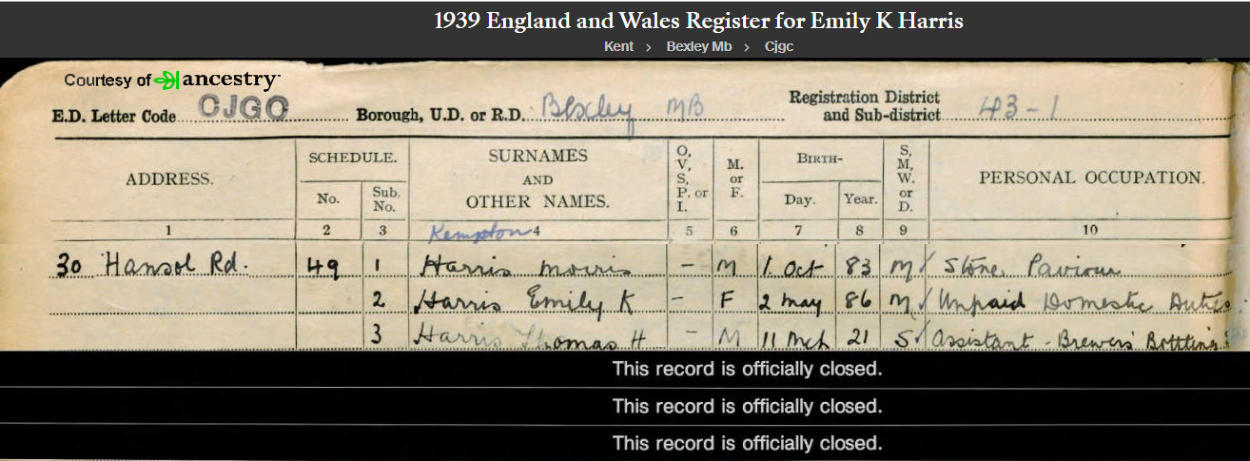 1939 England and Wales Register for Emily K Harris
Kent > Bexley Mb > Cjgc
Courtesy of ancestry
E.D. Letter Code CJGC Borough, U.D. or R.D. Bexley MB Registration District and Sub-district 43-1
ADDRESS. SCHEDULE. No. Sub. No. SURNAMES AND OTHER NAMES. O, V, S, P. or I. M. or F. BIRTH- Day. Year. S, M, W. or D. PERSONAL OCCUPATION.
1 2 3 4 5 6 7 8 9 10
Kempton
30 Hansol Rd. 49 1 Harris Morris - M 1 Oct 83 M Stone Paviour
2 Harris Emily K - F 2 May 86 M Unpaid Domestic Duties
3 Harris Thomas H - M 11 Mch 21 S Assistant - Brewers Bottling
This record is officially closed.
This record is officially closed.
This record is officially closed.